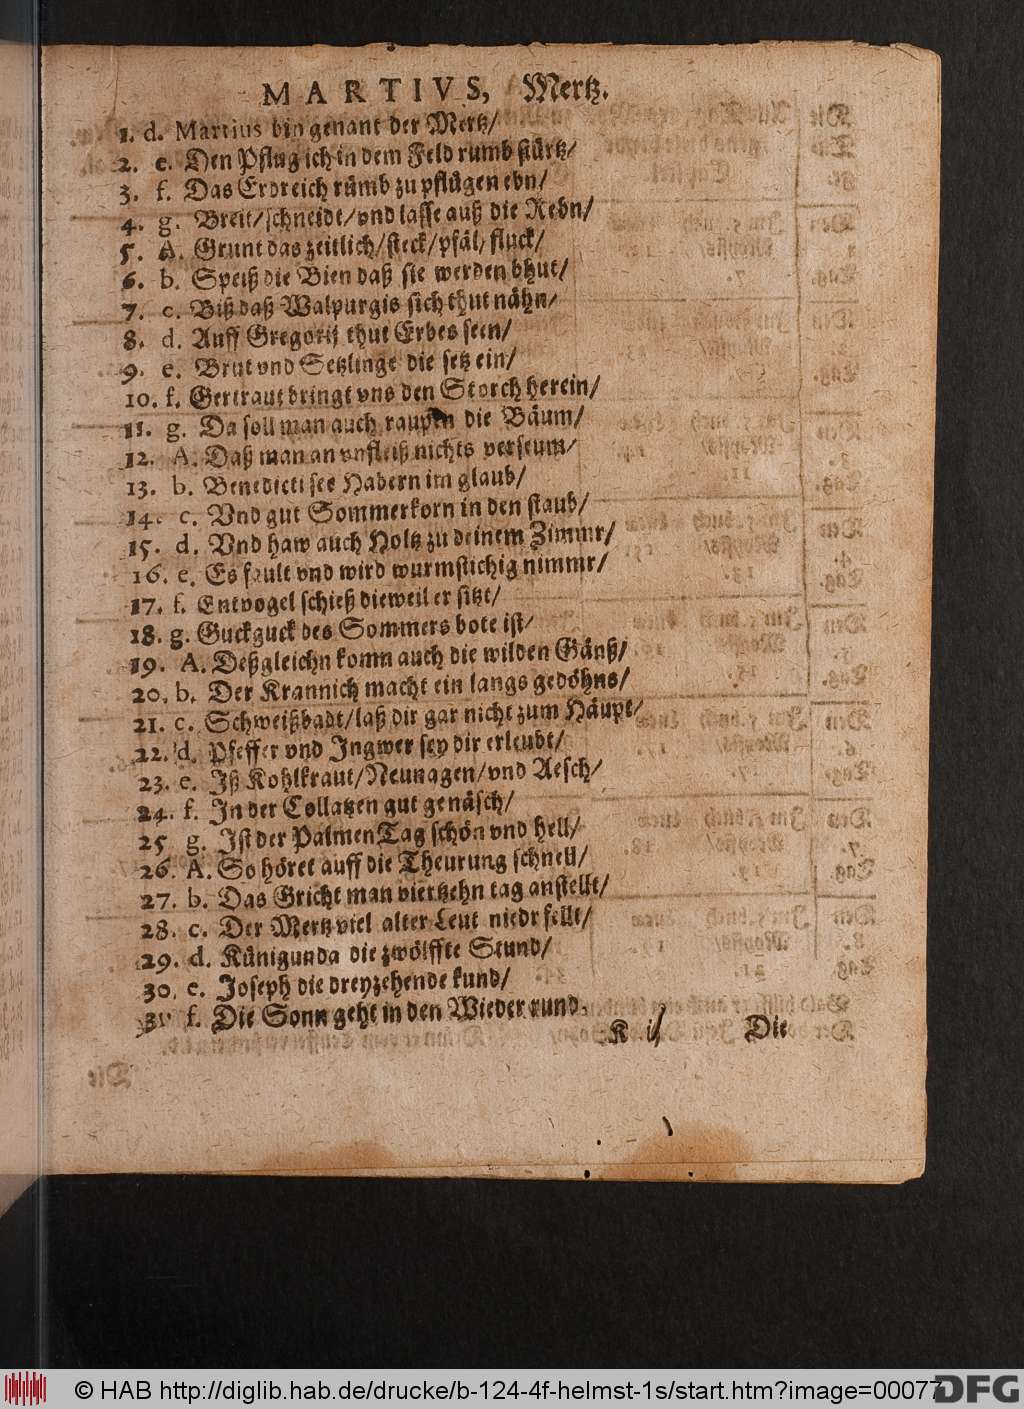 MARTIVS, Mertz.
1. d. Martius bin genant der Mertz/
2. e. Den Pflug ich in dem Feld rumb stürtz/
3. f. Das Erdreich rümb zu pflügen ebn/
4. g. Breit/schneidt/vnd lasse auß die Rebn/
5. A. Grunt das zeitlich/steck/pfäl/fluck/
6. b. Speiß die Bien daß sie werden bhut/
7. c. Biß daß Walpurgis sich thut nähn/
8. d. Auff Gregorij thut Erbes seen/
9. e. Brut vnd Setzlinge die setz ein/
10. f. Gertraut bringt vns den Storch herein/
11. g. Da soll man auch raupen die Bäum/
12. A. Daß man an vnfleiß nichts verseum/
13. b. Benedicti see Habern im glaub/
14. c. Vnd gut Sommerkorn in den staub/
15. d. Vnd haw auch Holtz zu deinem Zimmr/
16. e. Es fault vnd wird wurmstichig nimmr/
17. f. Entvogel schieß dieweil er sitzt/
18. g. Guckguck des Sommers bote ist/
19. A. Deßgleichn komn auch die wilden Gänß/
20. b. Der Krannich macht ein langs gedöhns/
21. c. Schweißbadt/laß dir gar nicht zum Häupt/
22. d. Pfeffer vnd Ingwer sey dir erleubt/
23. e. Iß Kohlkraut/Neunagen/vnd Aesch/
24. f. In der Collatzen gut genäsch/
25 g. Ist der PalmenTag schön vnd hell/
26. A. So höret auff die Theurung schnell/
27. b. Das Gricht man viertzehn tag anstellt/
28. c. Der Mertz viel alter Leut niedr fellt/
29. d. Künigunda die zwölffte Stund/
30. e. Joseph die dreyzehende kund/
31 f. Die Sonn geht in den Wieder rund.
K ij Die
© HAB http://diglib.hab.de/drucke/b-124-4f-helmst-1s/start.htm?image=00077
DFG